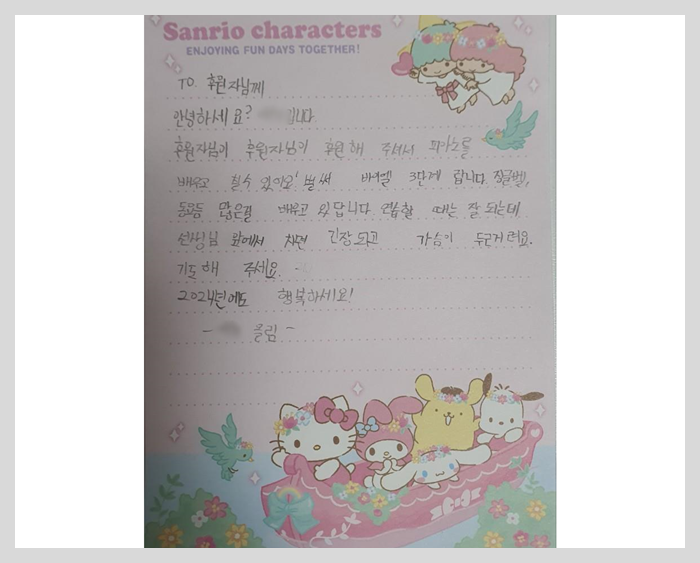 Sanrio characters
ENJOYING FUN DAYS TOGETHER!
TO. 후원자님께
안녕하세요? 입니다.
후원자님이 후원자님이 후원해 주셔서 피아노를
배우고 칠수 있어요! 벌써 바이엘 3단계 랍니다. 징글벨,
동요등 많은걸 배우고 있답니다. 연습할 때는 잘 되는데
선생님 앞에서 치면 긴장되고 가슴이 두근거려요.
기도해 주세요.
2024년에도 행복하세요!
- 올림 -